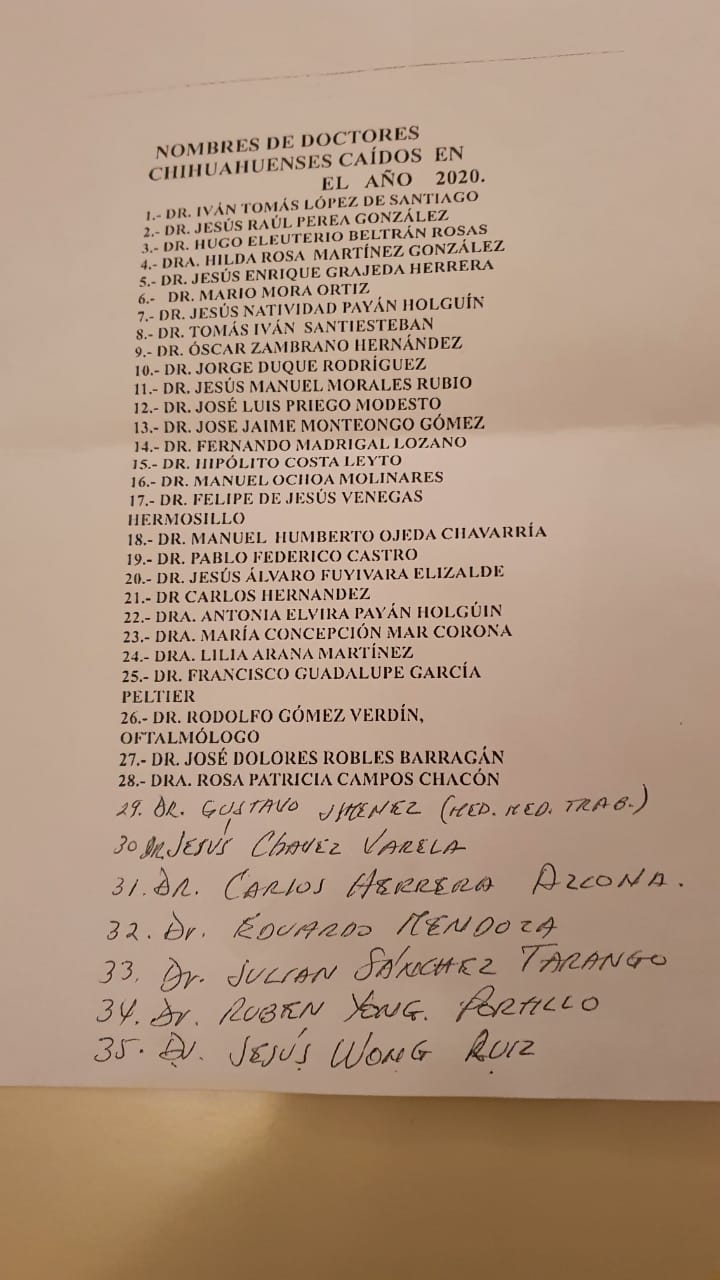 NOMBRES DE DOCTORES
CHIHUAHUENSES CAÍDOS EN
EL AÑO 2020.
1.- DR. IVÁN TOMÁS LÓPEZ DE SANTIAGO
2.- DR. JESÚS RAÚL PEREA GONZÁLEZ
3.- DR. HUGO ELEUTERIO BELTRÁN ROSAS
4.- DRA. HILDA ROSA MARTÍNEZ GONZÁLEZ
5.- DR. JESÚS ENRIQUE GRAJEDA HERRERA
6.- DR. MARIO MORA ORTIZ
7.- DR. JESÚS NATIVIDAD PAYÁN HOLGUÍN
8.- DR. TOMÁS IVÁN SANTIESTEBAN
9.- DR. ÓSCAR ZAMBRANO HERNÁNDEZ
10.- DR. JORGE DUQUE RODRÍGUEZ
11.- DR. JESÚS MANUEL MORALES RUBIO
12.- DR. JOSÉ LUIS PRIEGO MODESTO
13.- DR. JOSE JAIME MONTEONGO GÓMEZ
14.- DR. FERNANDO MADRIGAL LOZANO
15.- DR. HIPÓLITO COSTA LEYTO
16.- DR. MANUEL OCHOA MOLINARES
17.- DR. FELIPE DE JESÚS VENEGAS
HERMOSILLO
18.- DR. MANUEL HUMBERTO OJEDA CHAVARRÍA
19.- DR. PABLO FEDERICO CASTRO
20.- DR. JESÚS ÁLVARO FUYIVARA ELIZALDE
21.- DR CARLOS HERNANDEZ
22.- DRA. ANTONIA ELVIRA PAYÁN HOLGÚIN
23.- DRA. MARÍA CONCEPCIÓN MAR CORONA
24.- DRA. LILIA ARANA MARTÍNEZ
25.- DR. FRANCISCO GUADALUPE GARCÍA
PELTIER
26.- DR. RODOLFO GÓMEZ VERDÍN,
OFTALMÓLOGO
27.- DR. JOSÉ DOLORES ROBLES BARRAGÁN
28.- DRA. ROSA PATRICIA CAMPOS CHACÓN
29. DR. GUSTAVO JIMENEZ (MED. MED. TRAB.)
30 DR. JESÚS CHAVEZ VARELA
31. DR. CARLOS HERRERA AZCONA.
32. Dr. EDUARDO MENDOZA
33. Dr. JULIAN SÁNCHEZ TARANGO
34. Dr. RUBEN YONG. PORTILLO
35. Dr. JESÚS WONG RUIZ